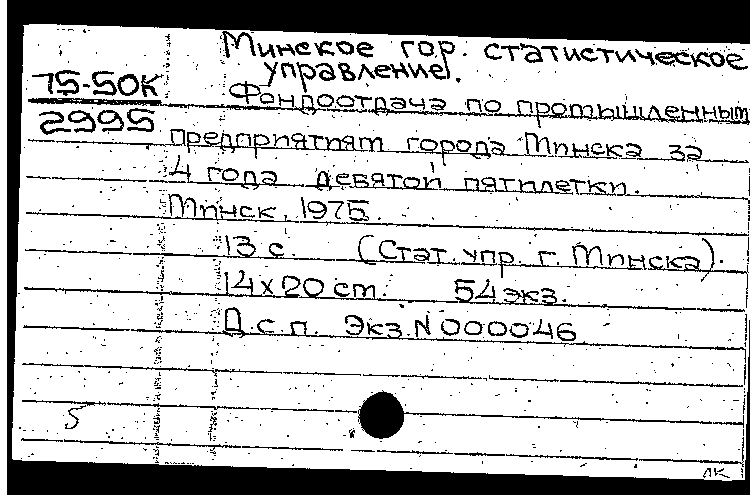 Минское гор. статистическое
управление.
75-50К
2995
Фондоотдача по промышленным
предприятиям города Минска за
4 года девятой пятилетки.
Минск, 1975.
13 с. (Стат. упр. г. Минска).
14х20 см. 54 экз.
Д.с.п. Экз.N 000046
5
ЛК